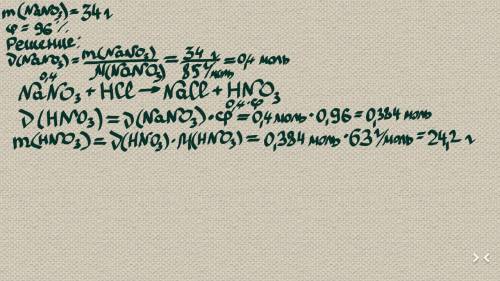 m(NaNO₃)=34 г
φ = 96 %
Решение:
ν(NaNO₃)=m(NaNO₃)/M(NaNO₃)=34 г/85 г/моль=0,4 моль
0,4
NaNO₃ + HCl → NaCl + HNO₃
0,4·φ
ν(HNO₃)=ν(NaNO₃)·φ=0,4 моль·0,96=0,384 моль
m(HNO₃)=ν(HNO₃)·M(HNO₃)=0,384 моль·63 г/моль=24,2 г